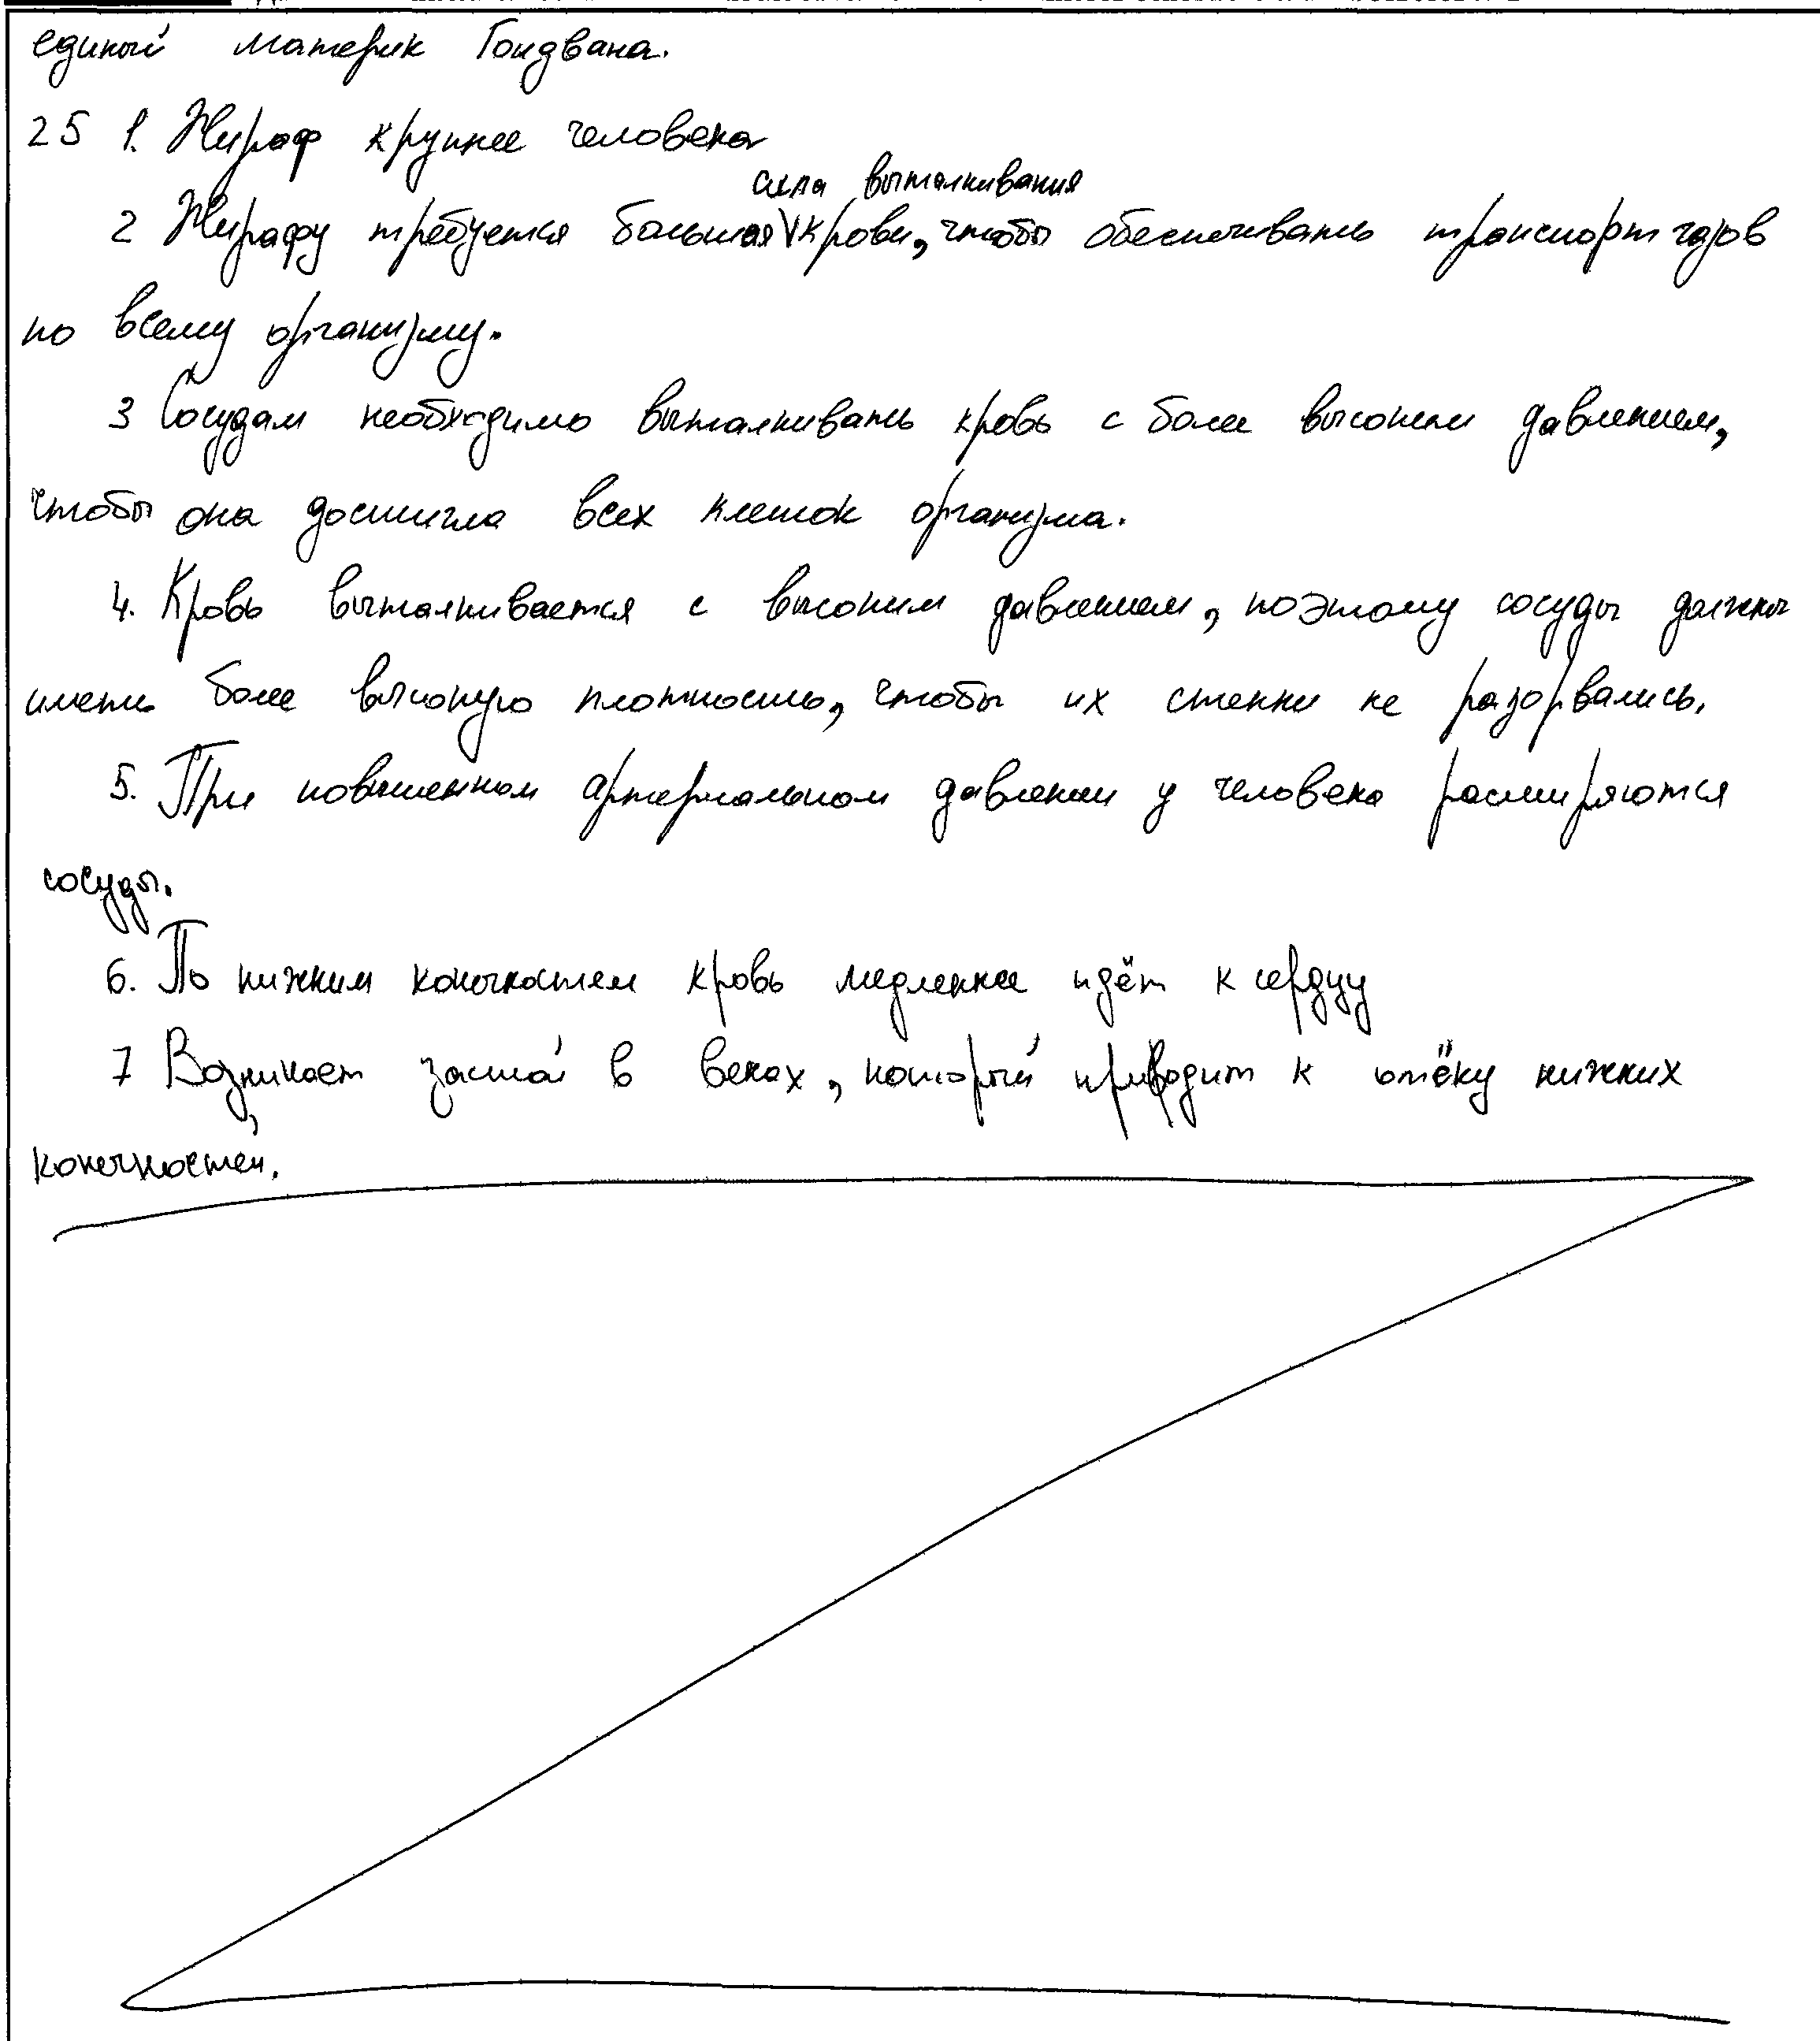 единый материк Гондвана.
25 1. Жираф крупнее человека
сила выталкивания
2 Жирафу требуется большая крови, чтобы обеспечивать транспорт газов
по всему организму.
3 Сосудам необходимо выталкивать кровь с более высоким давлением,
чтобы она достигла всех клеток организма.
4. Кровь выталкивается с высоким давлением, поэтому сосуды должны
иметь более высокую плотность, чтобы их стенки не разорвались.
5. При повышенном артериальном давлении у человека расширяются
сосуды.
6. По нижним конечностем кровь медленнее идёт к сердцу
7 Возникает застой в венах, который приводит к отёку нижних
конечностей.